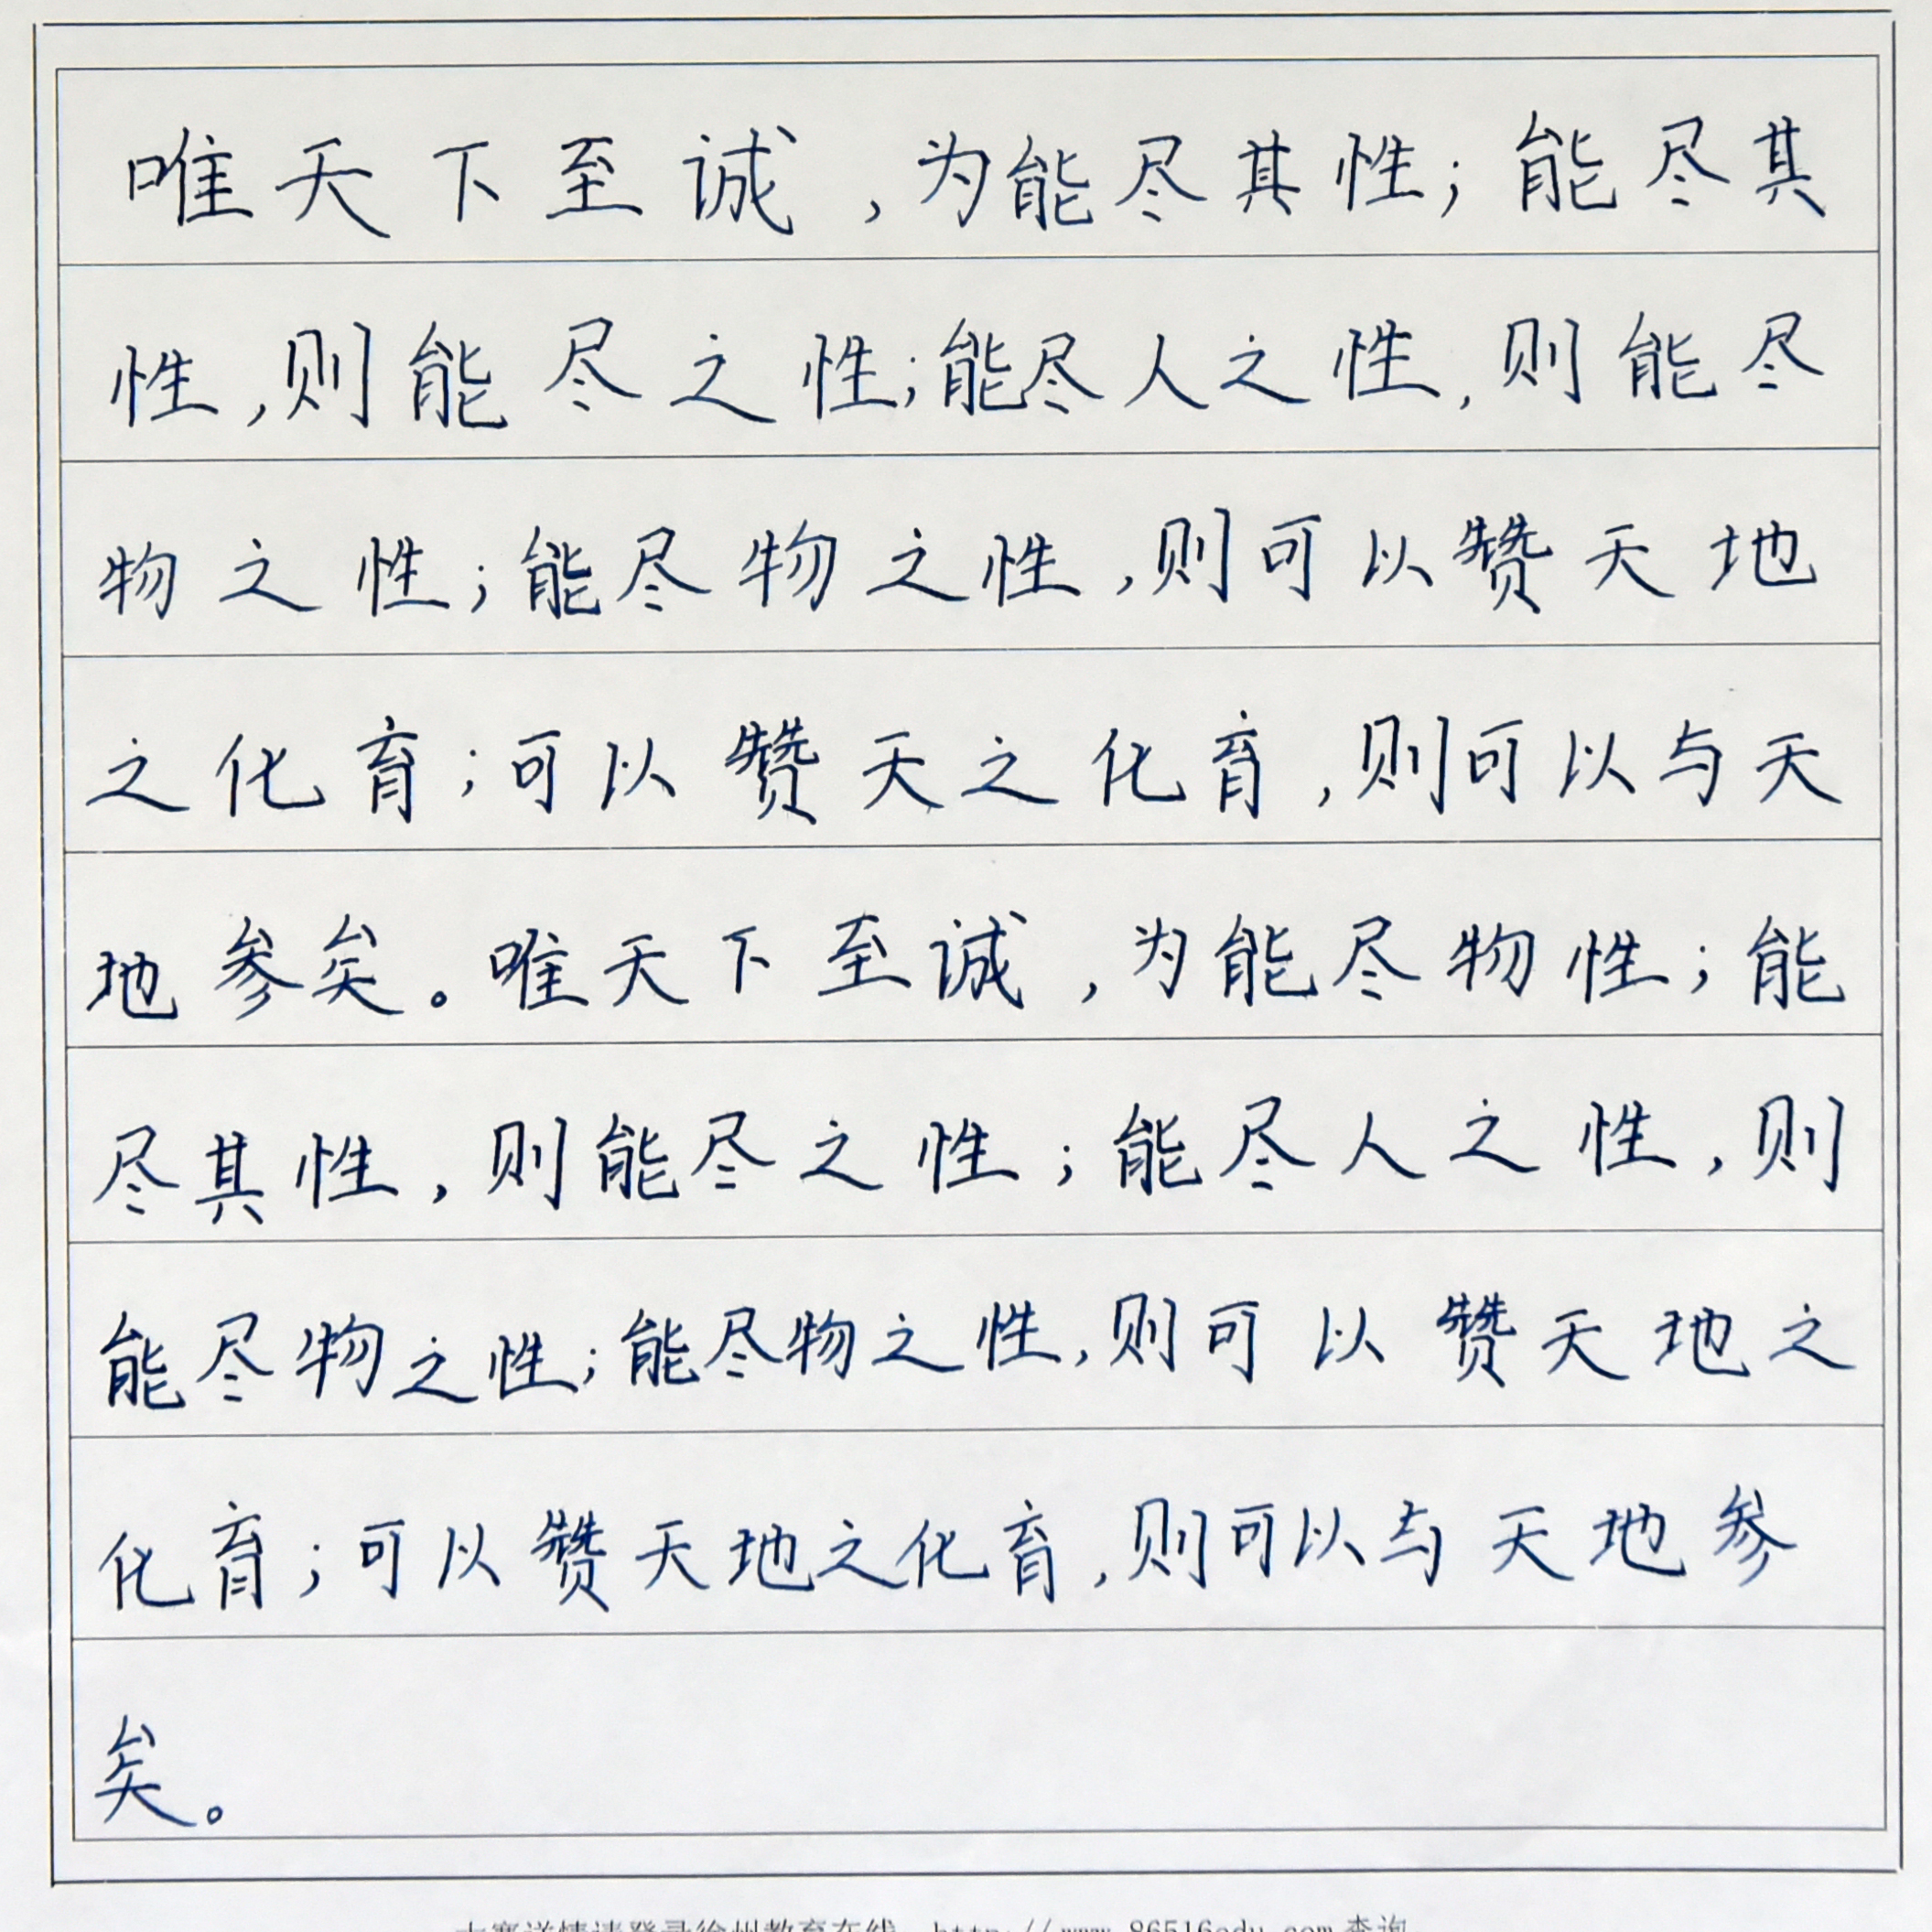 唯天下至诚,为能尽其性;能尽其
性,则能尽之性;能尽人之性,则能尽
物之性;能尽物之性,则可以赞天地
之化育;可以赞天之化育,则可以与天
地参矣。唯天下至诚,为能尽物性;能
尽其性,则能尽之性;能尽人之性,则
能尽物之性;能尽物之性,则可以赞天地之
化育;可以赞天地之化育,则可以与天地参
矣。
大赛详情请登录徐州教育在线 http://www.86516edu.com查询